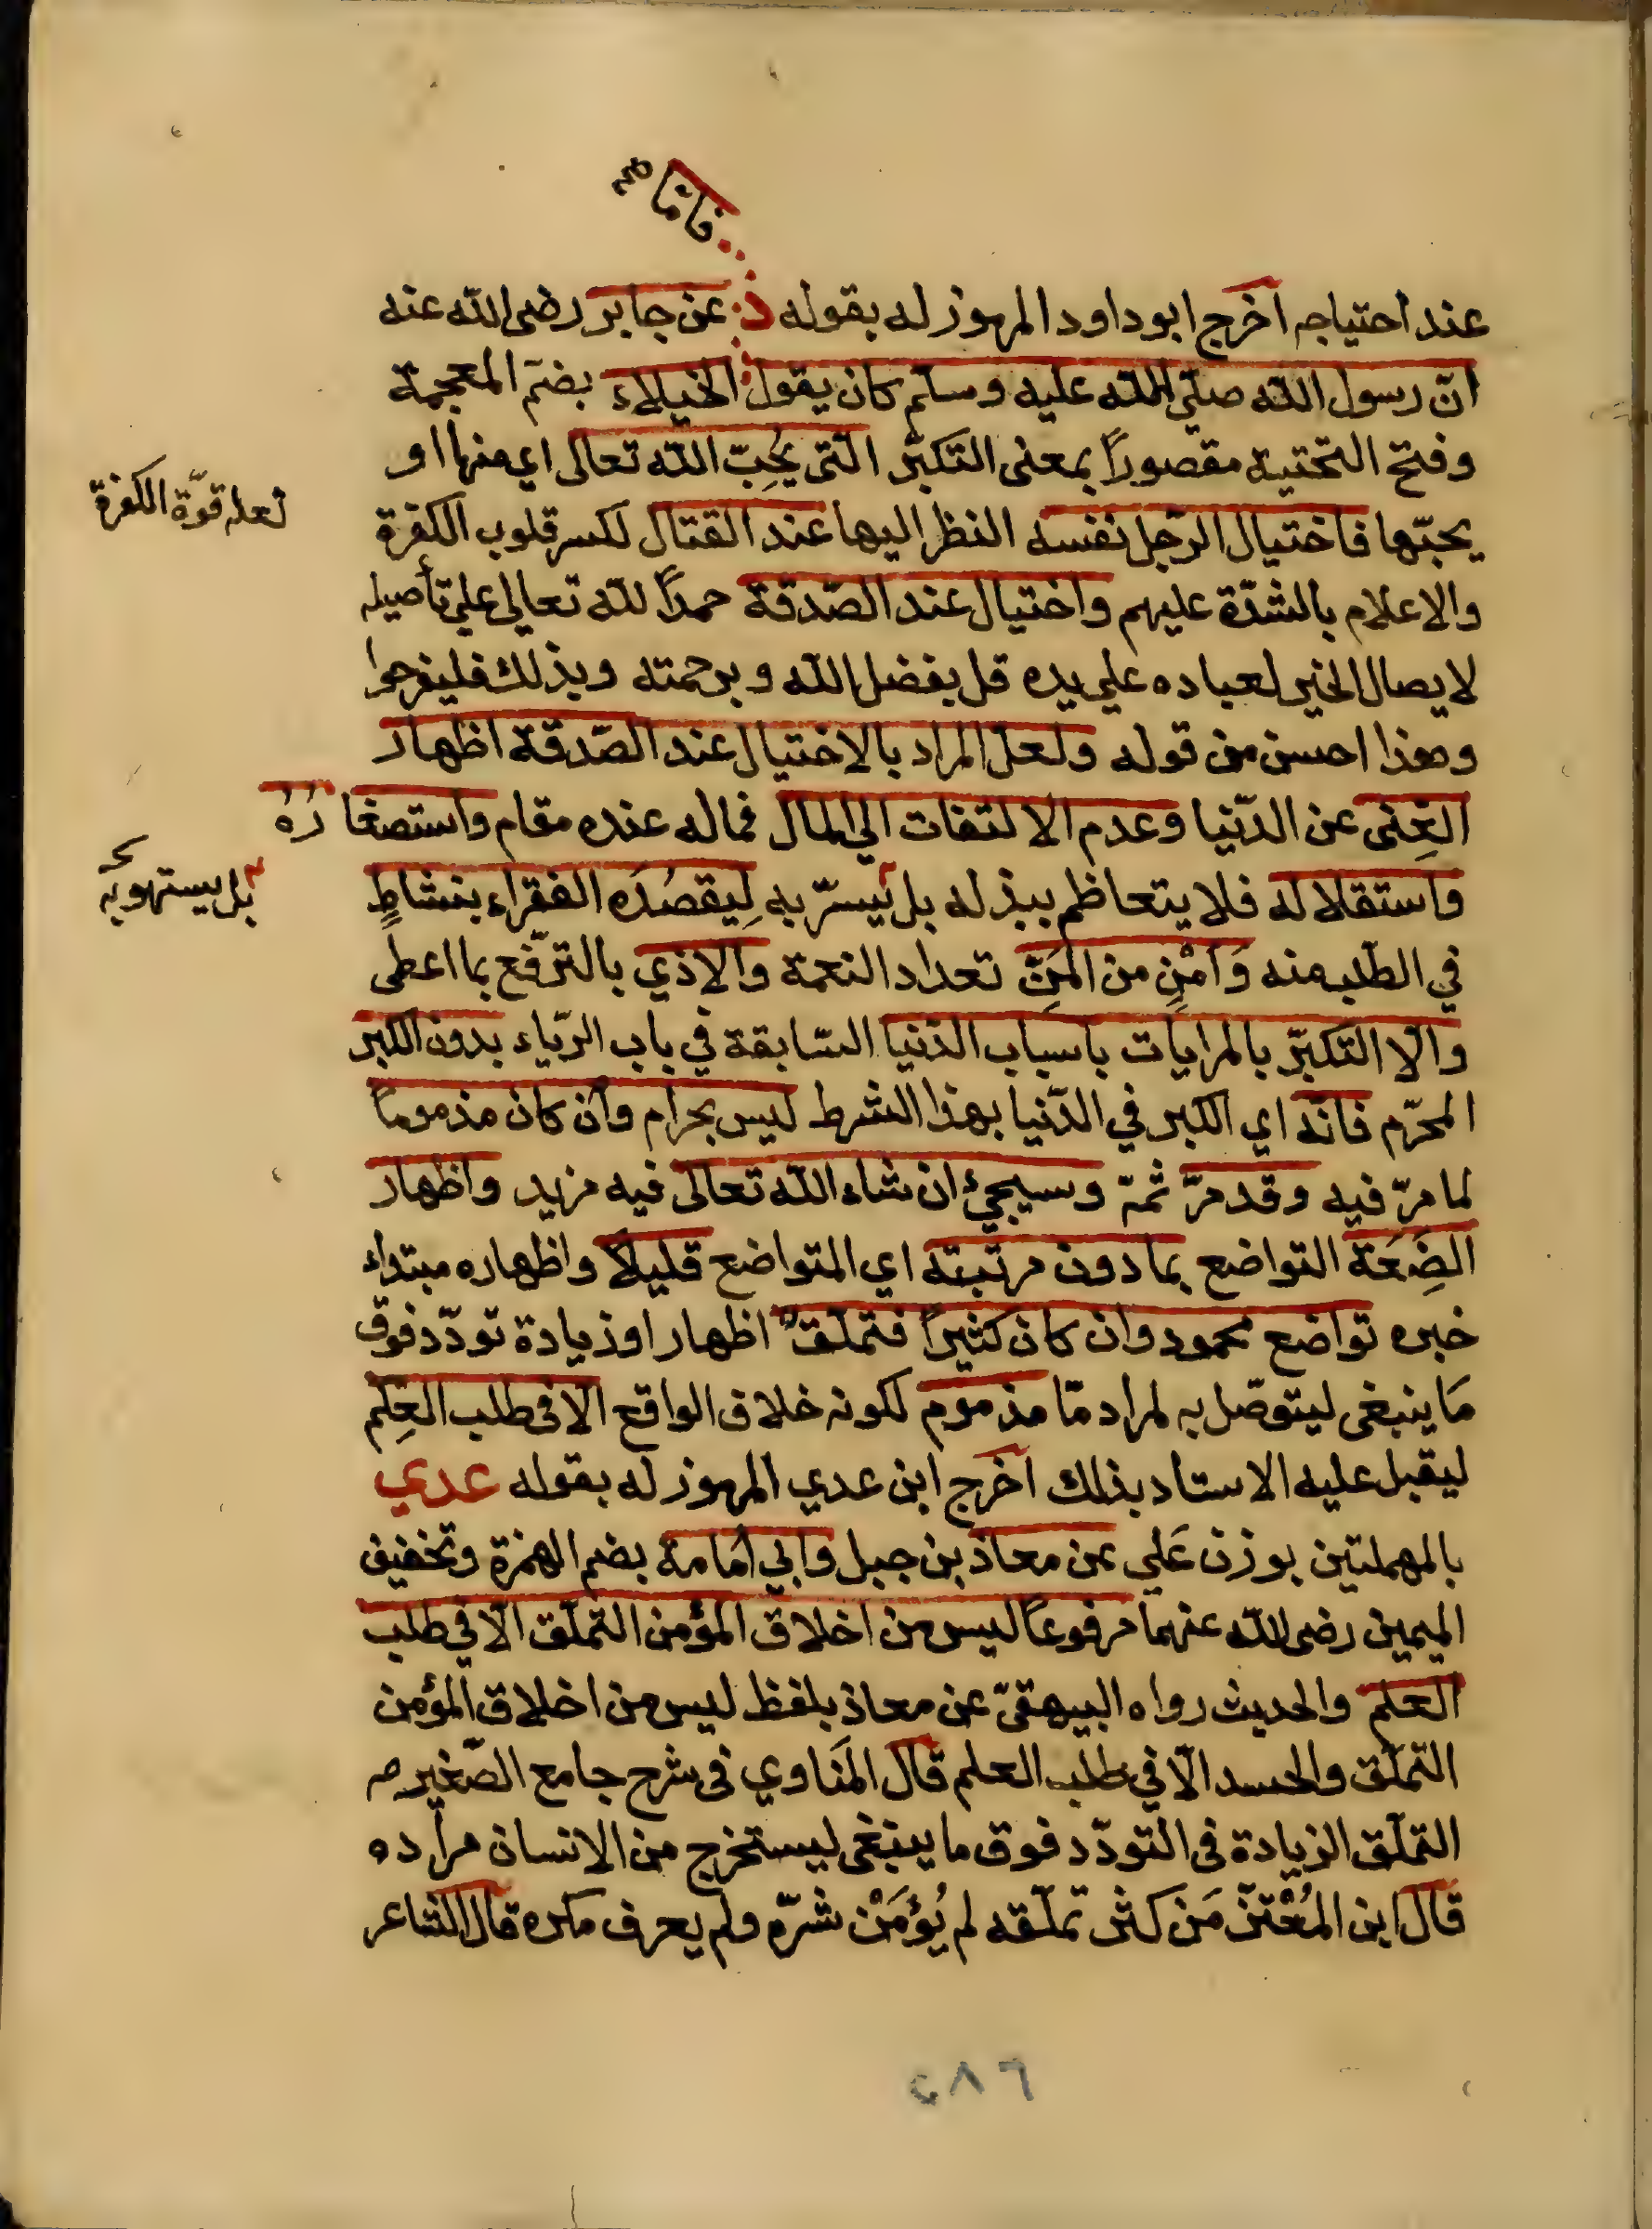 فاما صح
عند احتياجه اخرج ابوداود المرموز له بقوله د: عن جابر رضى الله عنه
انّ رسول الله صلّى الله عليه وسلّم كان يقول الخيلاء بضمّ المعجمة
وفتح التحتية مقصوراً بمعنى التكبّر التى يُحِبّ الله تعالى اي منها او
يحبّها فاختيال الرّجل نفسه النظر اليها عند القتال لكسر قلوب الكفرة
لعله قوّة الكفرة
والاعلام بالشدّة عليهم واختيال عند الصّدقة حمداً لله تعالى علي تأصيله
لايصال الخير لعباده علي يده قل بفضل الله وبرحمته وبذلك فليفرحوا
وهذا احسن من قوله ولعل المراد بالاختيال عند الصّدقة اظهار
الغِنى عن الدّنيا وعدم الالتفات الي المال فماله عنده مقام واستصغاره
واستقلاله فلا يتعاظم ببذله بل يسرّ به لِيقصُدَه الفقراء بنشاطٍ
بل يستهو به
في الطلب منه وَاَمْنٍ من المَنّ تعداد النعمة والاذي بالترفّع بما اعطى
والا التكبّر بالمرايات باسباب الدّنيا السّابقة في باب الريّاء بدون الكبر
المحرّم فانّه اي الكبر في الدّنيا بهذا الشرط ليس بحرام وان كان مذموماً
لما مرّ فيه وقد مرّ ثمّ وسيجئُ ان شاء الله تعالى فيه مزيد واظهار
الضَِعَة التواضع بما دون مرتبته اي المتواضع قليلاً واظهاره مبتداء
خبره تواضع محمود وان كان كثيراً فتملّقٌ اظهار او زيادة تودّد فوق
مَا ينبغى ليتوصّل به لمراد مّا مذموم لكونه خلاف الواقع الا فى طلب العِلم
ليقبل عليه الاستاد بذلك اخرج ابن عدي المرموز له بقوله عدي
بالمهملتين بوزن عَلي عن معاذ بن جبل وابي اُمامة بضم الهمزة وتخفيف
الميمين رضى الله عنهما مرفوعاً ليس من اخلاق المؤمن التملّق الّا في طلب
العلم والحديث رواه البيهقىّ عن معاذ بلفظ ليس من اخلاق المؤمن
التملّق والحسد الّا في طلب العلم قال المَناوي فى شرح جامع الصّغير
التملّق الزيادة فى التودّد فوق ما ينبغى ليستخرج من الانسان مراده
قَال ابن المُعْتزّ مَن كثر تملّقه لم يُؤمَنْ شرّه ولم يعرف مكره قال الشاعر
٢٨٦